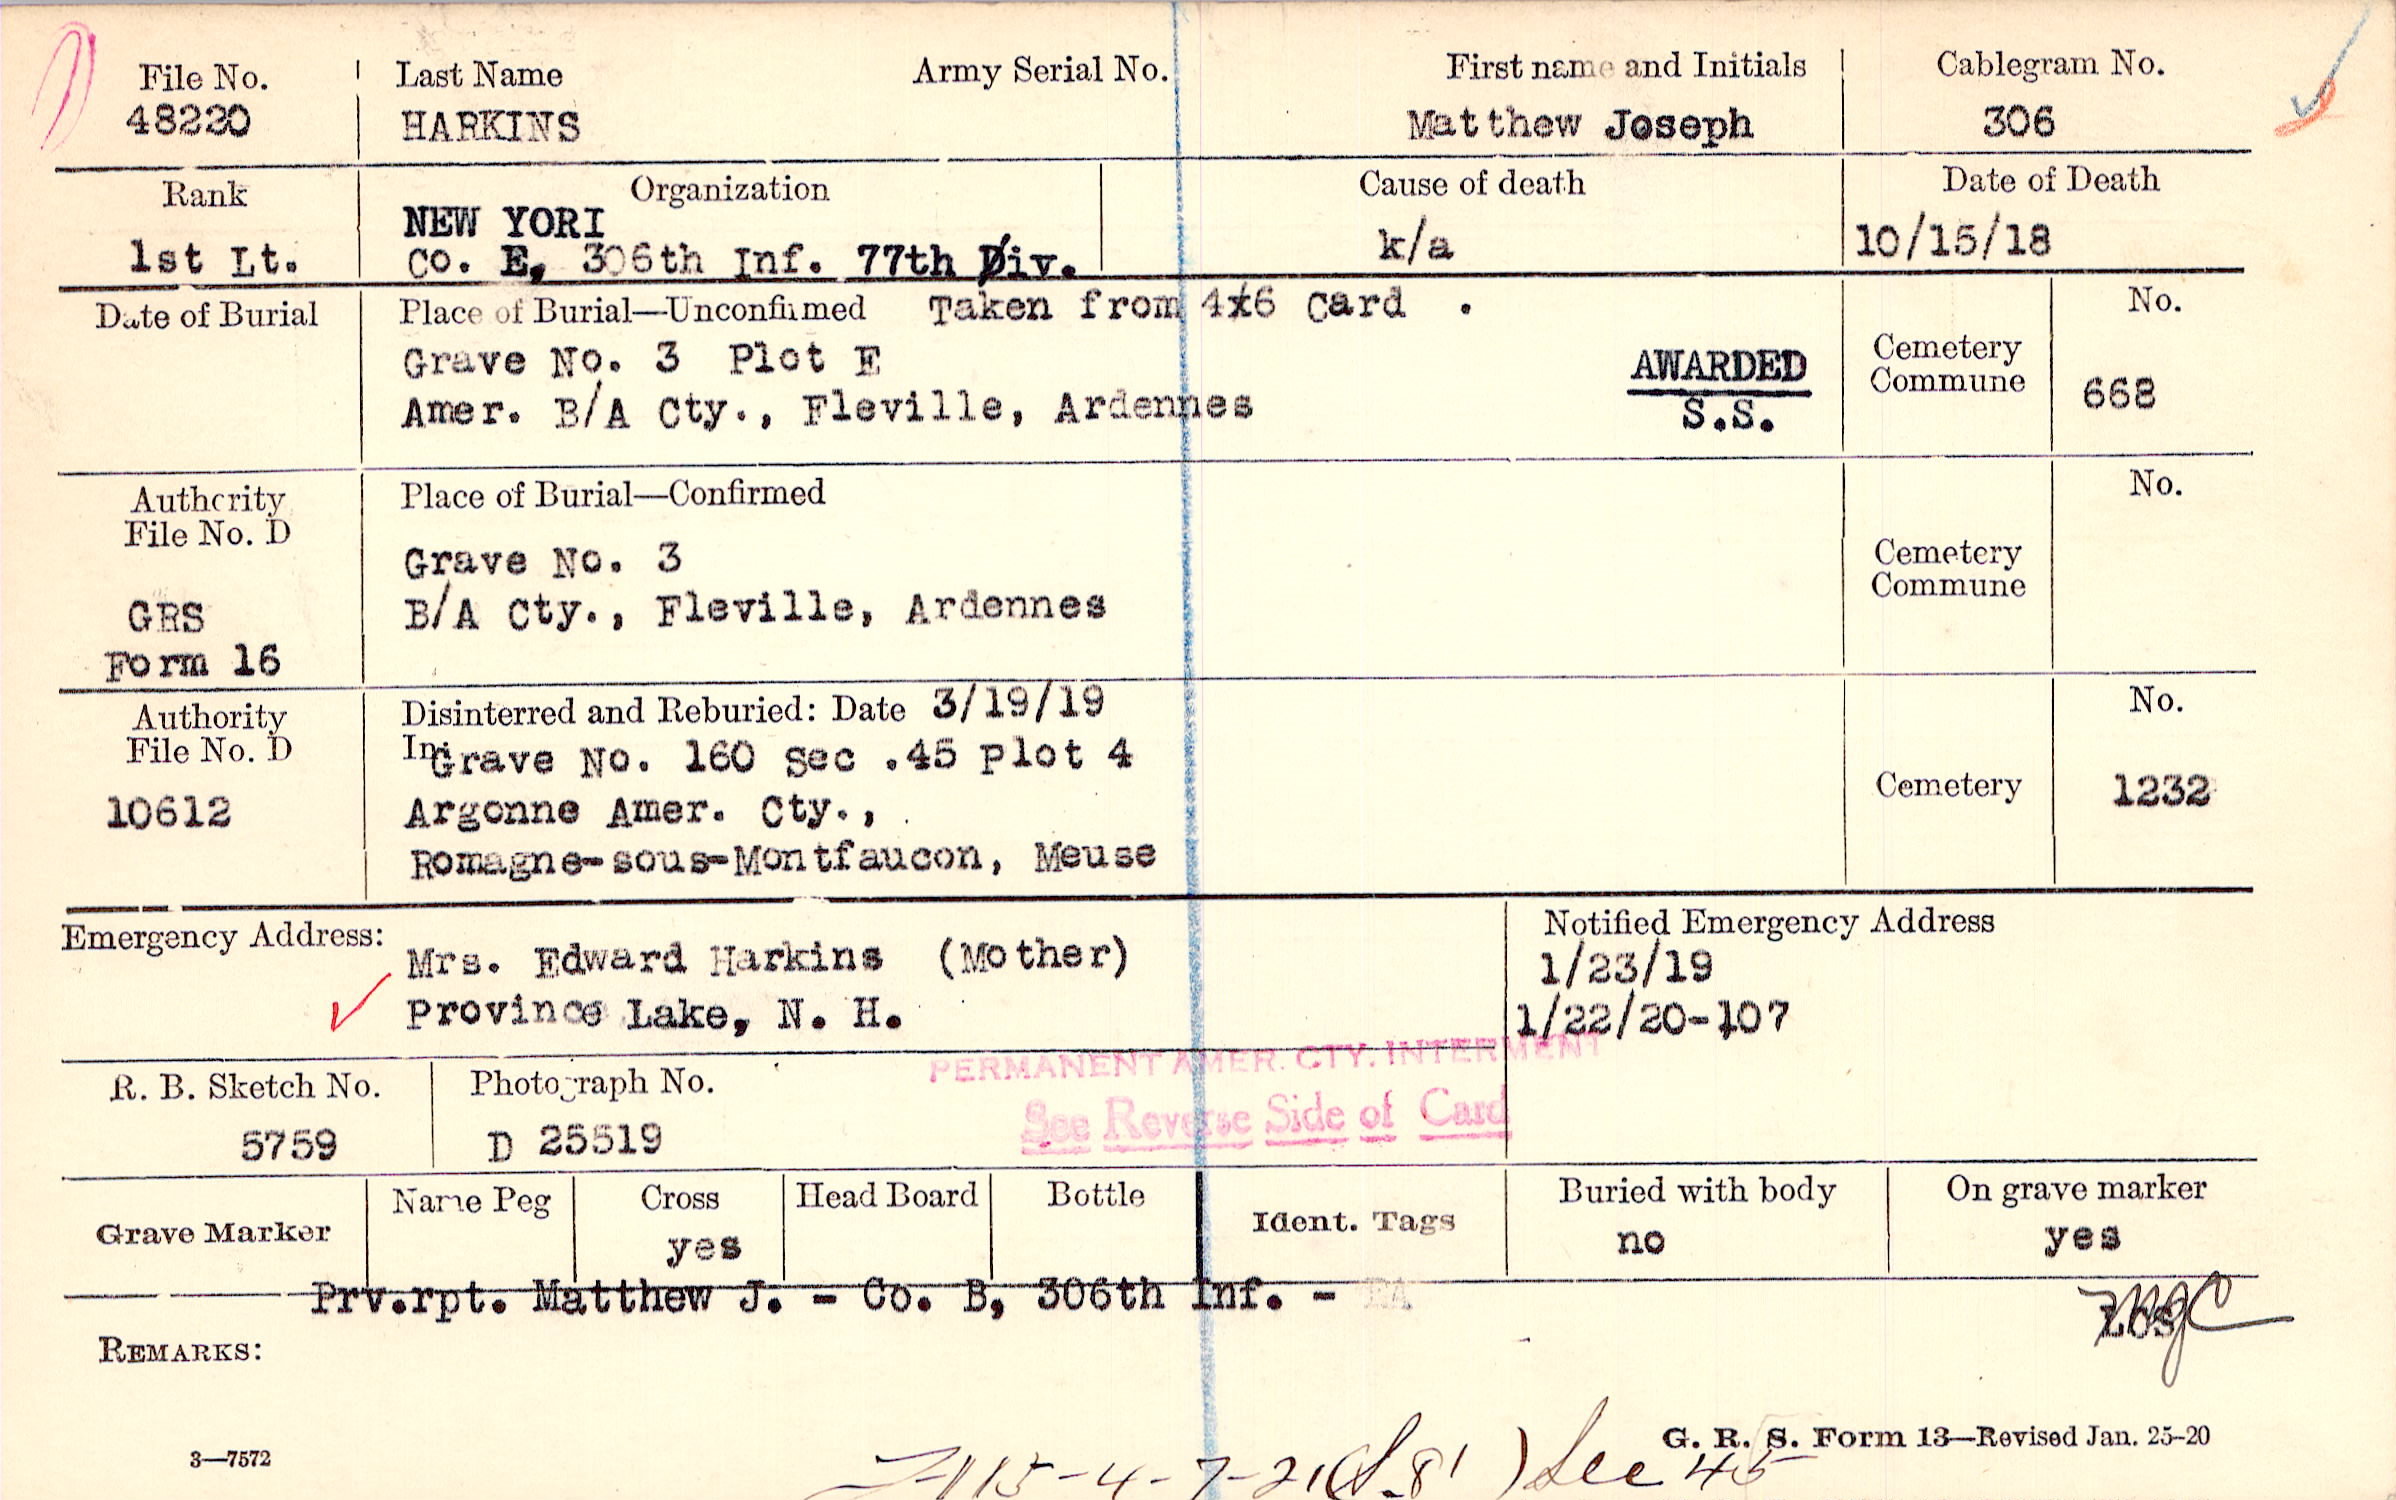 File No.
48220
Last Name
HARKINS
Army Serial No.
First name and Initials
Matthew Joseph
Cablegram No.
306
Rank
1st Lt.
Organization
NEW YORK
Co. E, 306th Inf. 77th Div.
Cause of death
k/a
Date of Death
10/15/18
Date of Burial
Place of Burial—Unconfirmed Taken from 4x6 Card .
Grave No. 3 Plot E
Amer. B/A Cty., Fleville, Ardennes
AWARDED
S.S.
Cemetery
Commune
No.
668
Authority
File No. D
GRS
Form 16
Place of Burial—Confirmed
Grave No. 3
B/A Cty., Fleville, Ardennes
Cemetery
Commune
No.
Authority
File No. D
10612
Disinterred and Reburied: Date 3/19/19
In: Grave No. 160 Sec .45 Plot 4
Argonne Amer. Cty.,
Romagne-sous-Montfaucon, Meuse
Cemetery
No.
1232
Emergency Address:
Mrs. Edward Harkins (Mother)
Province Lake, N. H.
Notified Emergency Address
1/23/19
1/22/20-107
PERMANENT AMER. CTY. INTERMENT
See Reverse Side of Card
R. B. Sketch No.
5759
Photograph No.
D 25519
Grave Marker
Name Peg
Cross
yes
Head Board
Bottle
Ident. Tags
Buried with body
no
On grave marker
yes
Prv.rpt. Matthew J. - Co. B, 306th Inf. -
REMARKS:
3—7572
See 45
G. R. S. Form 13—Revised Jan. 25-20